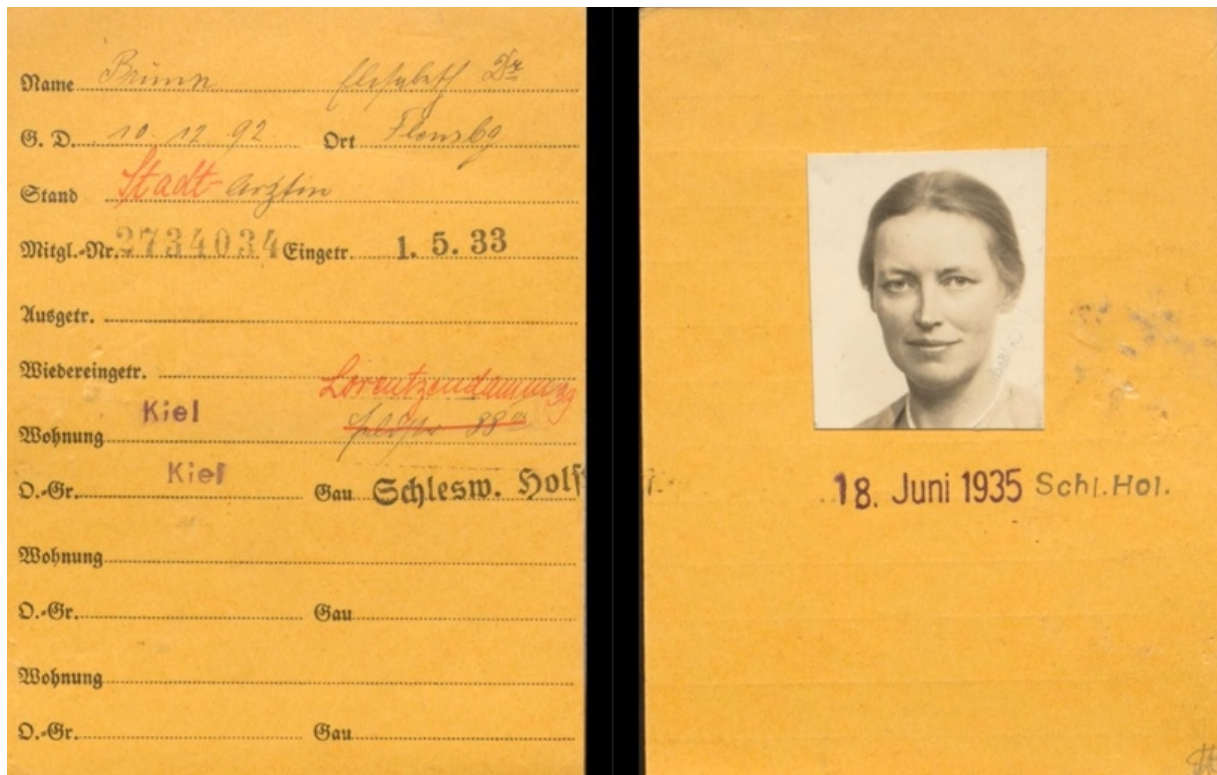 Name Brunn Elisabeth Dr
G. D. 10. 12. 92 Ort Flensbg
Stand Stadt-Arztin
Mitgl.-Nr. 2734034 Eingetr. 1. 5. 33
Ausgetr.
Wiedereingetr.
Lorentzendamm 39
Kiel
Wohnung Feldstr 88 III
Kiel
O.-Gr. Gau Schlesw. Holst
Wohnung
O.-Gr. Gau
Wohnung
O.-Gr. Gau
18. Juni 1935 Schl.Hol.